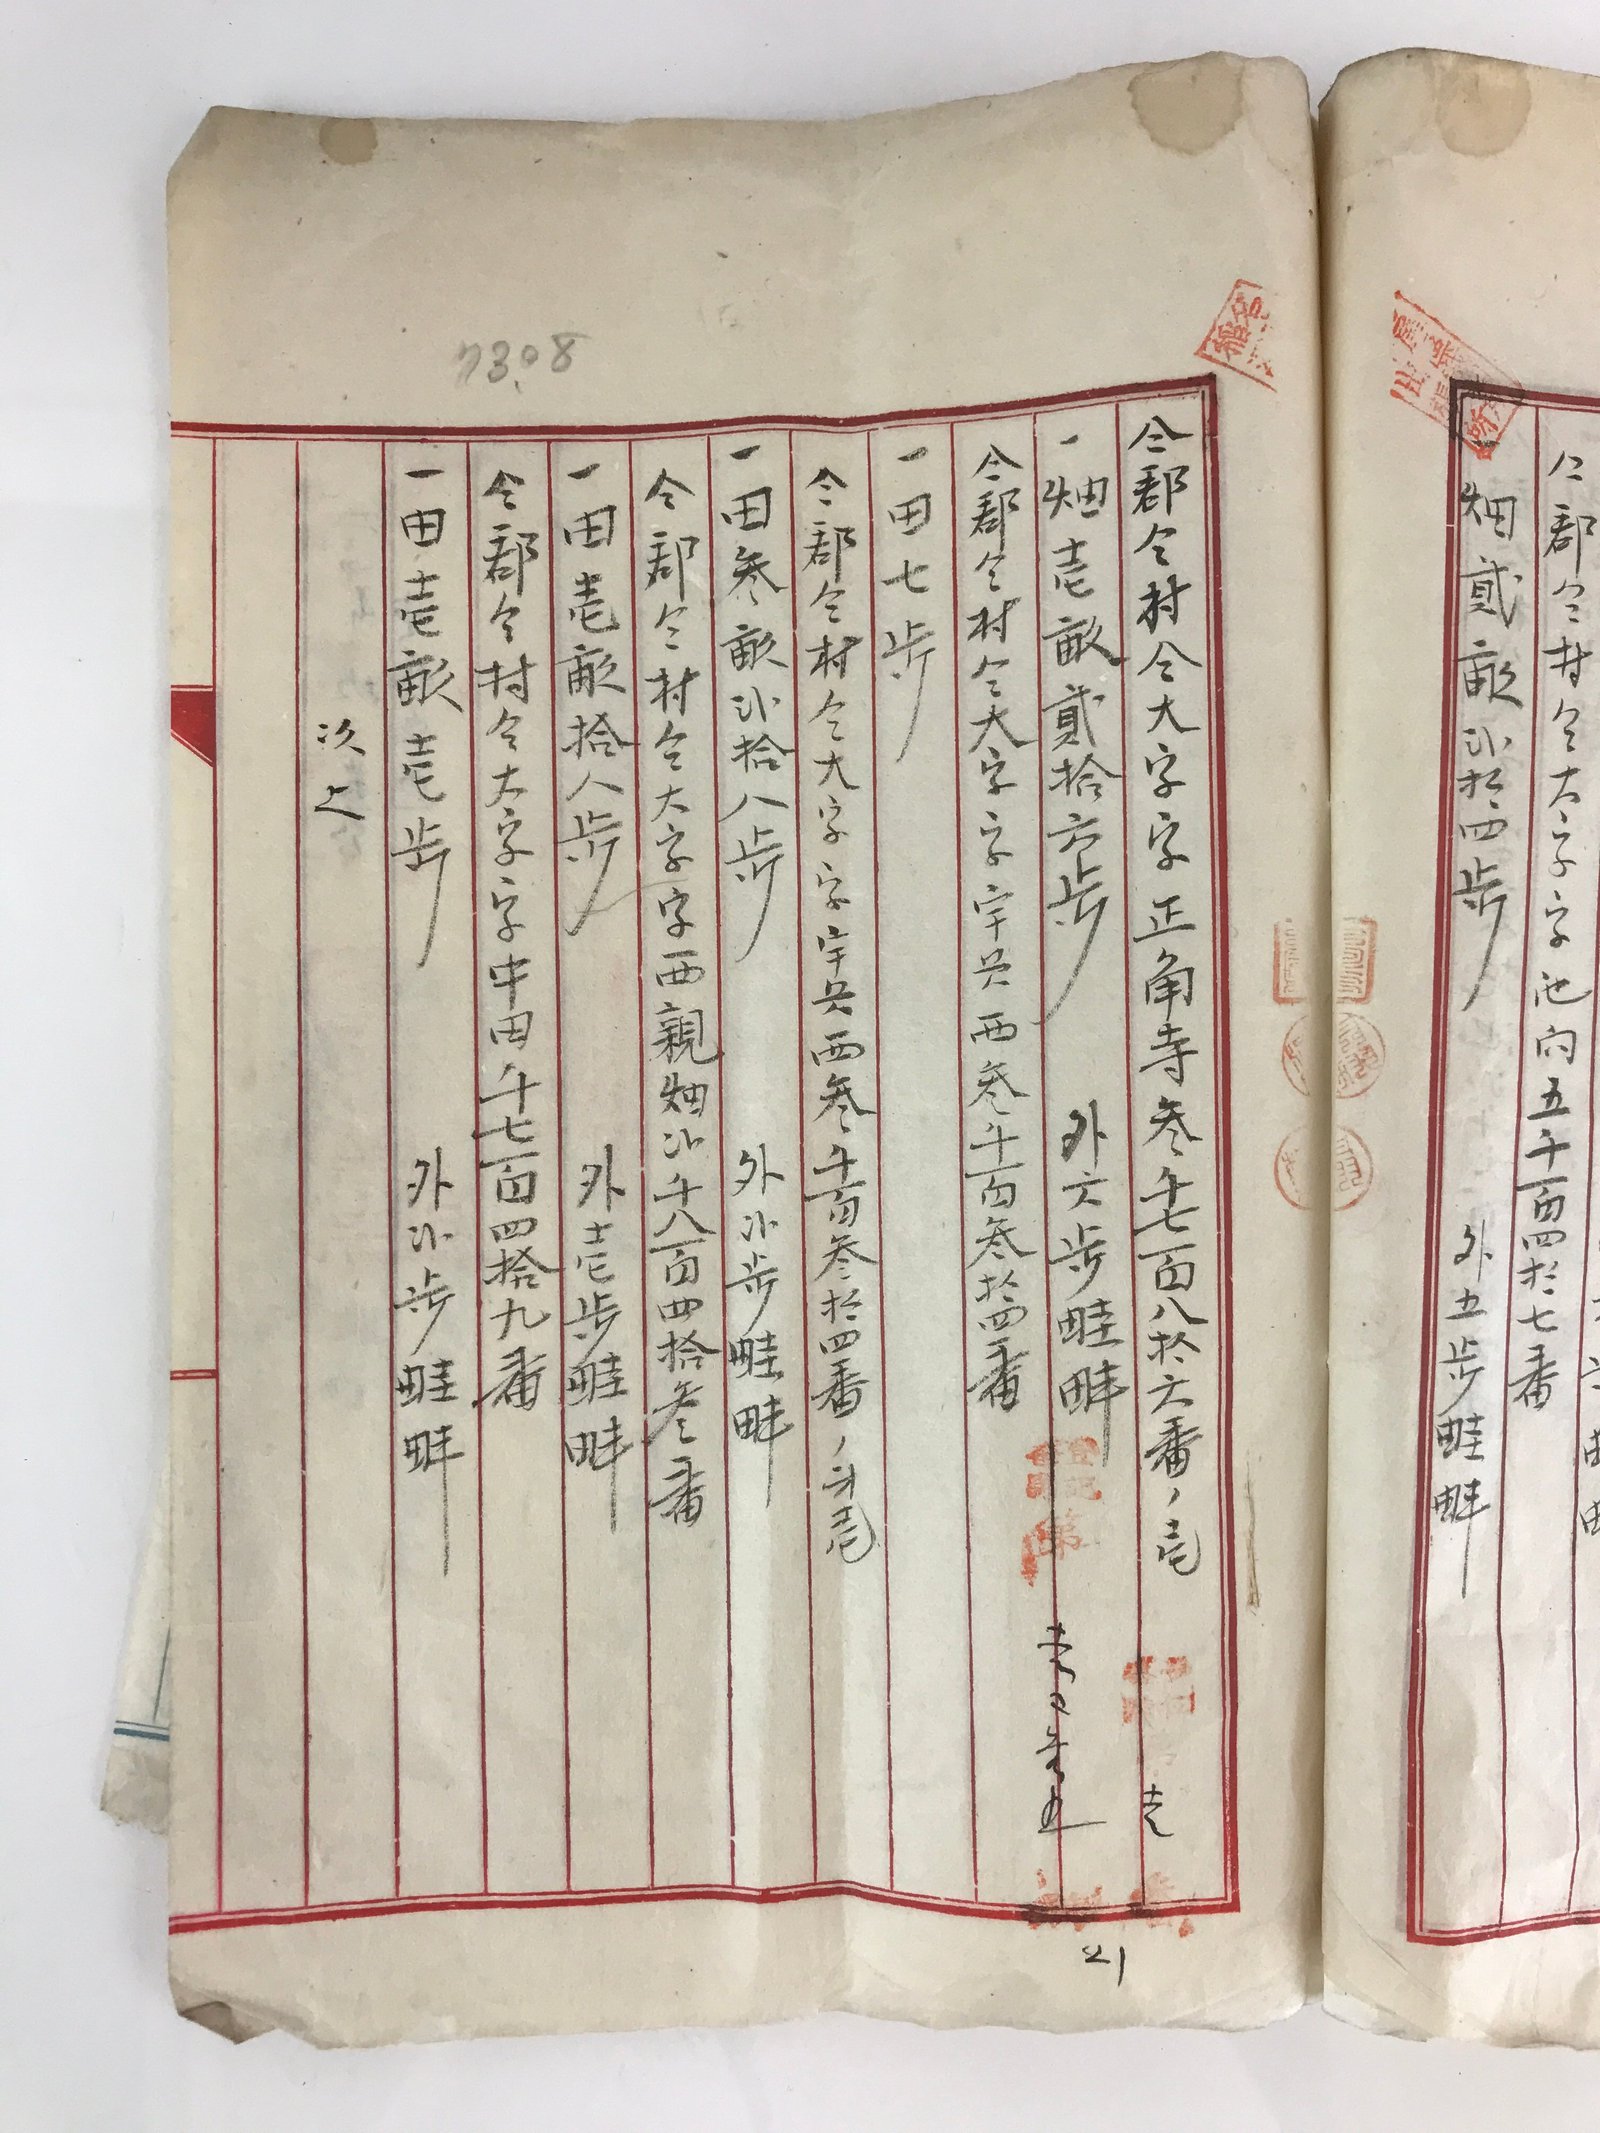 仝郡仝村仝大字字池向五千百四拾七番
一畑貳畝弐拾四歩 外五歩畦畔
仝郡仝村仝大字字正角寺叁千七百八拾六番ノ壱
一畑壱畝貳拾六歩 外六歩畦畔
仝郡仝村仝大字字宇呉西叁千百叁拾四番
一田七歩
仝郡仝村仝大字字宇呉西叁千百叁拾四番ノ弐壱
一田叁畝弐拾八歩 外弐歩畦畔
仝郡仝村仝大字字西親畑弐千八百四拾叁番
一田壱畝拾八歩 外壱歩畦畔
仝郡仝村仝大字字中田千七百四拾九番
一田壱畝壱歩 外弐歩畦畔
次上
7308
登記第
21